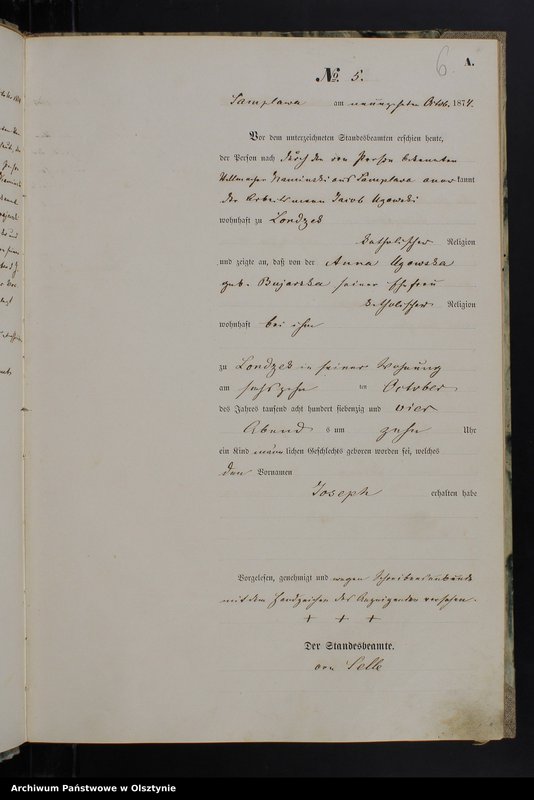 6.
A.
No. 5.
Samplawa am neunzehnten Octob. 1874.
Vor dem unterzeichneten Standesbeamten erschien heute,
der Person nach durch den von Person bekannten
Kaminski aus Samplawa anerkannt
der Arbeitsmann Jacob Ugowski
wohnhaft zu Londzek
katholischer Religion
und zeigte an, daß von der Anna Ugowska
geb. Bujarska seiner Ehefrau
katholischer Religion
wohnhaft bei ihm
zu Londzek in seiner Wohnung
am sechszehn ten October
des Jahres tausend acht hundert siebenzig und vier
Abend s um zehn Uhr
ein Kind männlichen Geschlechts geboren worden sei, welches
den Vornamen
Joseph erhalten habe
Vorgelesen, genehmigt und wegen Schreibensunkunde
mit dem Handzeichen des Anzeigenden versehen.
+ + +
Der Standesbeamte.
von Selle
Archiwum Państwowe w Olsztynie